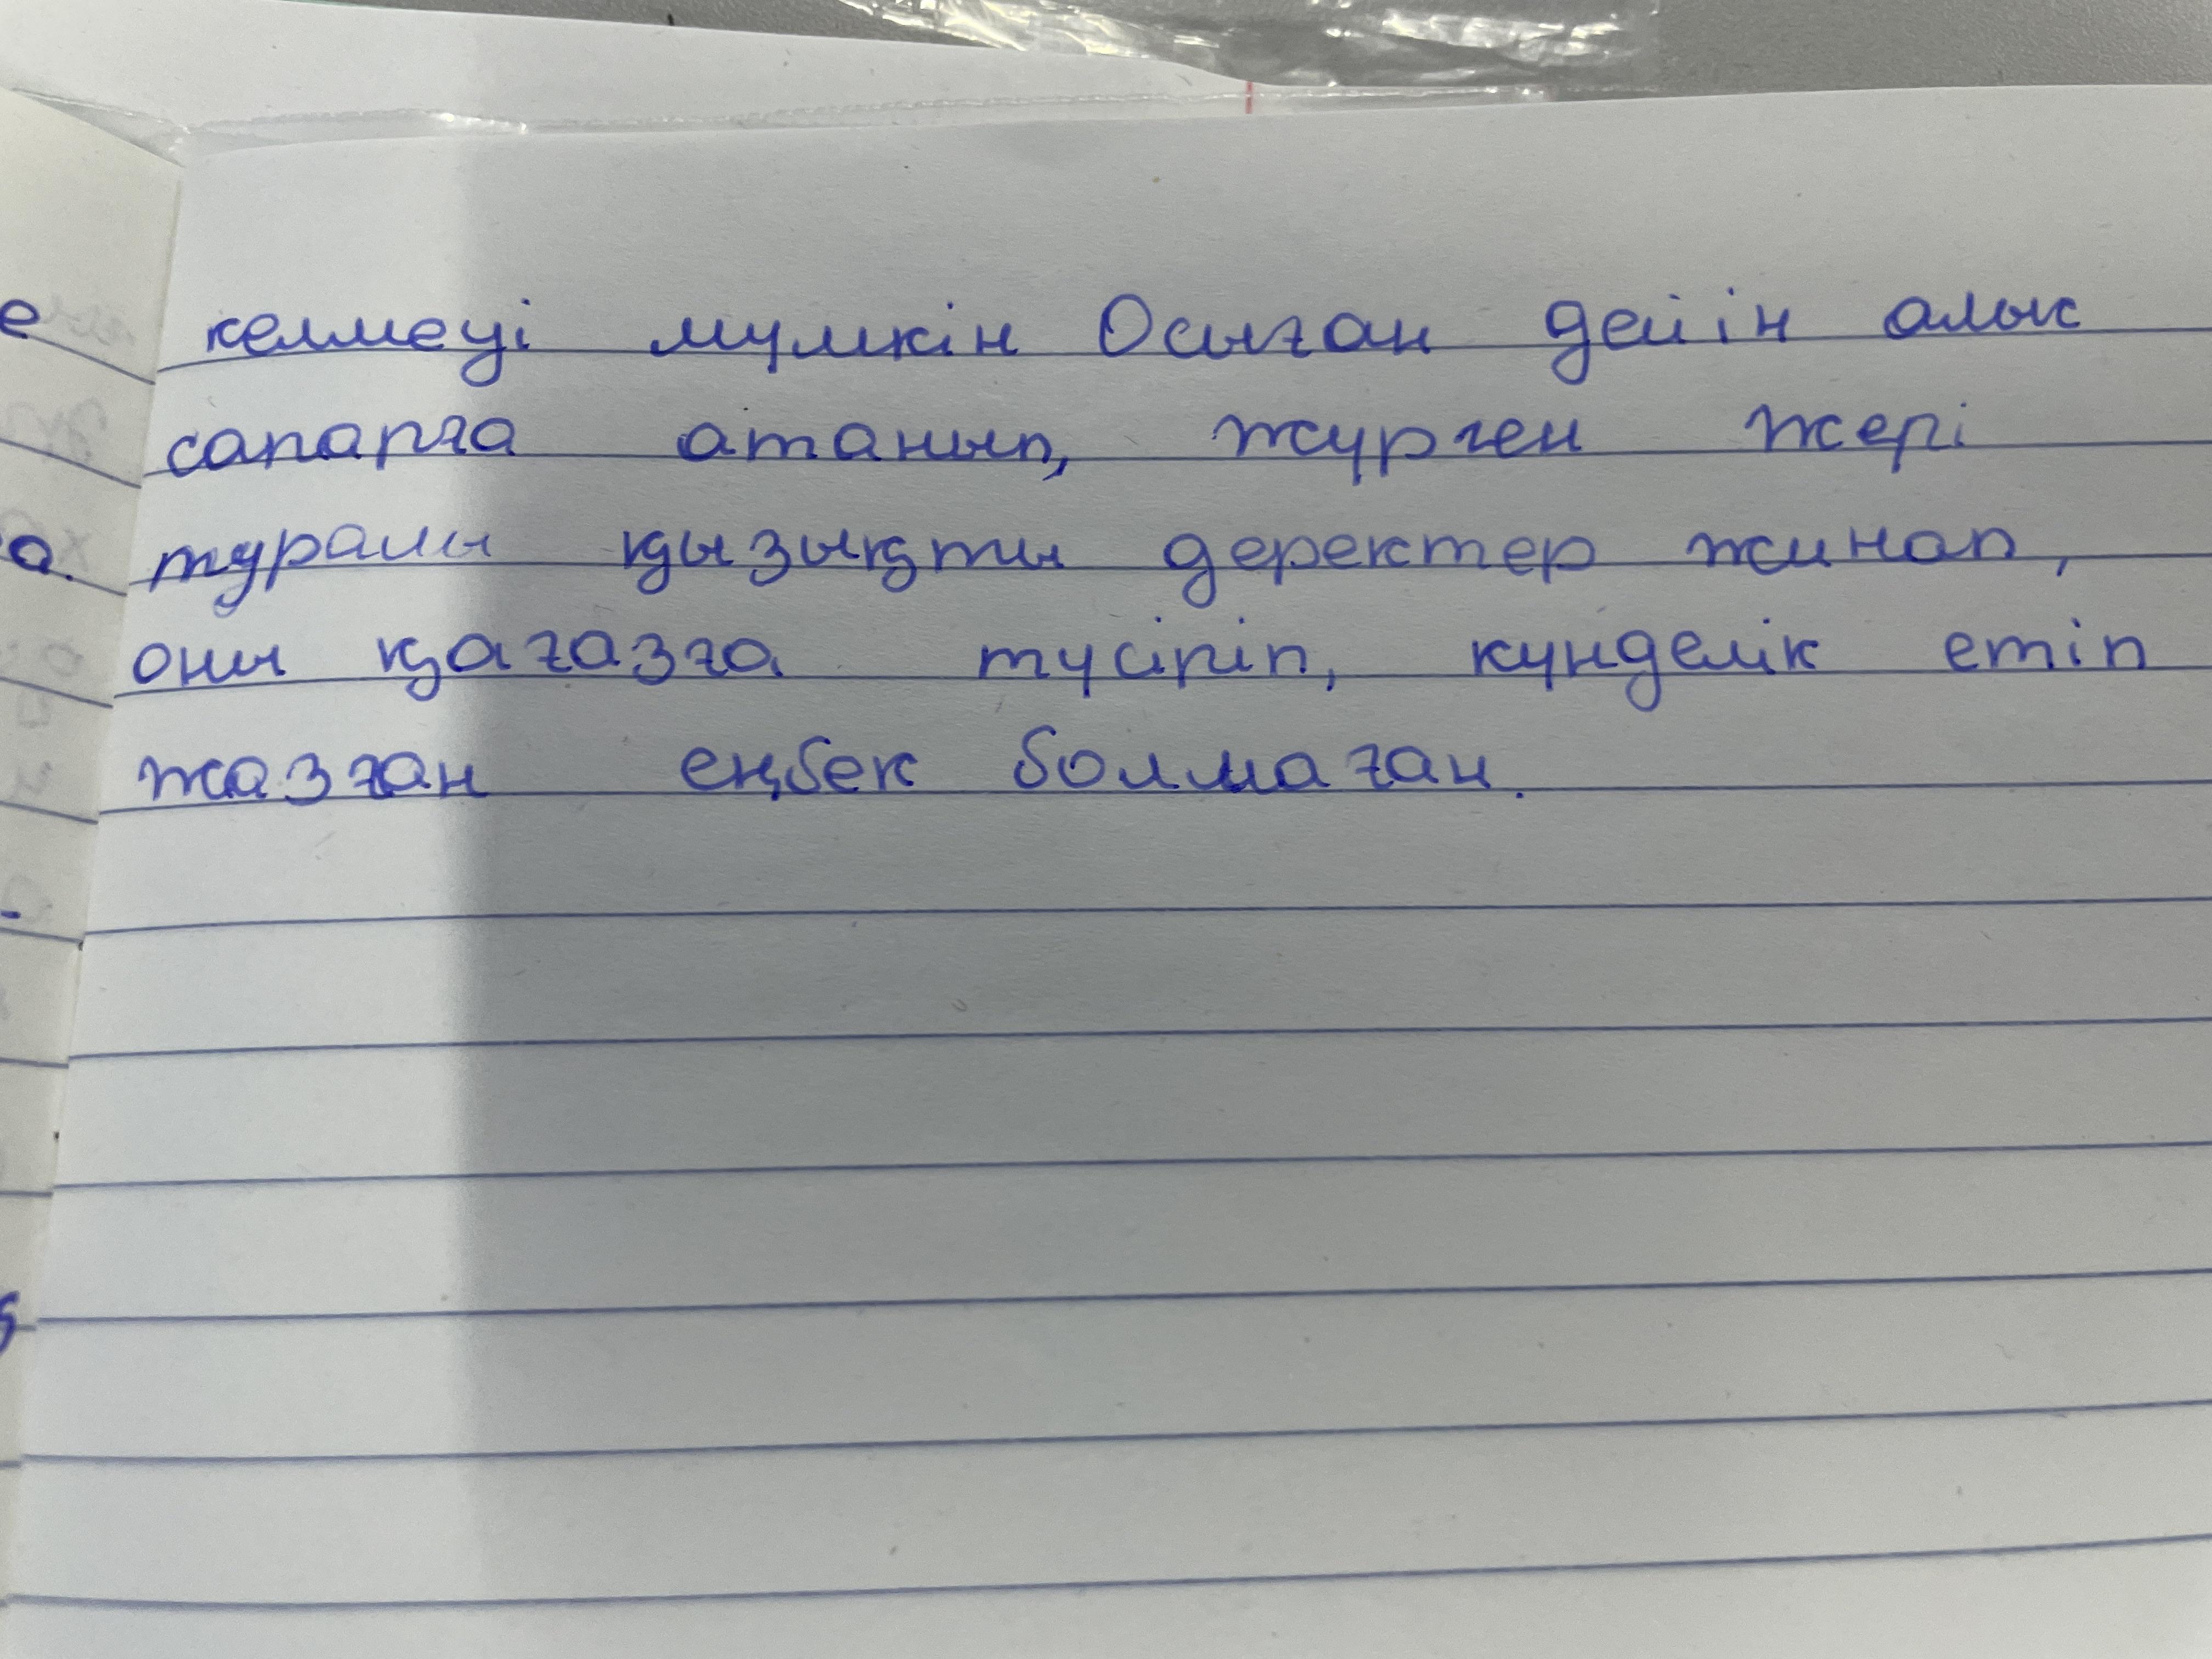 келмеуі мүмкін Осыған дейін алыс
сапарға атанып, жүрген жері
туралы қызықты деректер жинап,
оны қағазға түсіріп, күнделік етіп
жазған еңбек болмаған.